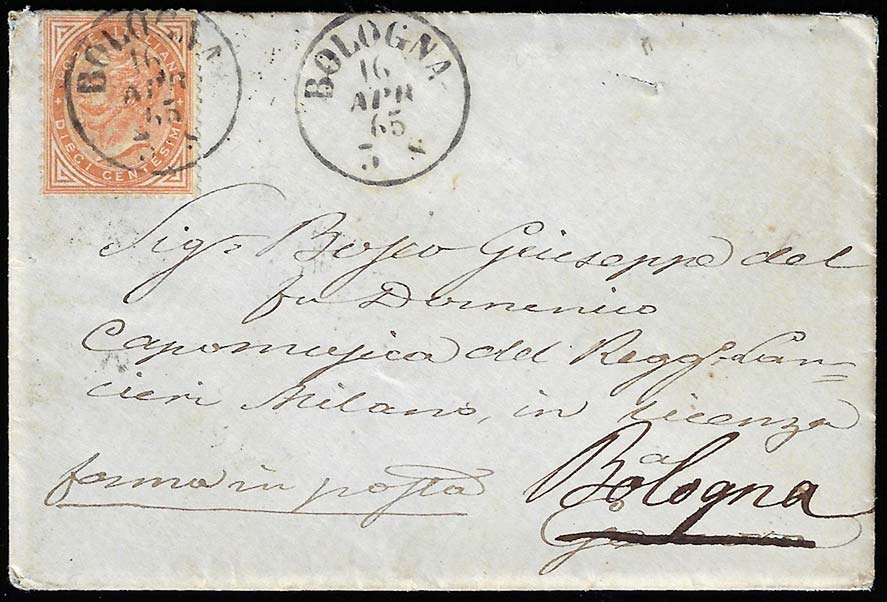 POSTE ITALIANE
DIECI CENTESIMI
BOLOGNA
16
APR
65
BOLOGNA
16
APR
65
Sigr Bosco Giuseppe del
fu Domenico
Capomusica del Reggo Lan=
cieri Milano, in licenza
a
ferma in posta Bologna